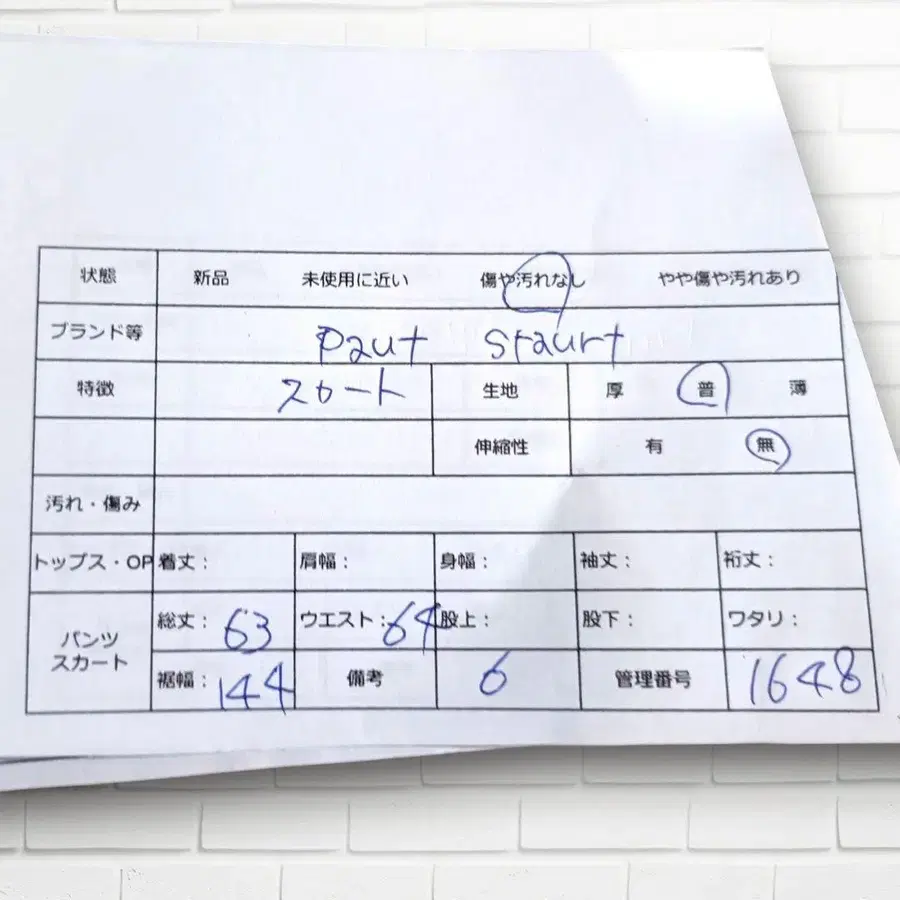 状態 新品 未使用に近い 傷や汚れなし やや傷や汚れあり
ブランド等 Paut Staurt
特徴 スカート 生地 厚 普 薄
伸縮性 有 無
汚れ・傷み
トップス・OP 着丈： 肩幅： 身幅： 袖丈： 裄丈：
パンツ スカート 総丈：63 ウエスト：64 股上： 股下： ワタリ：
裾幅：144 備考 6 管理番号 1648